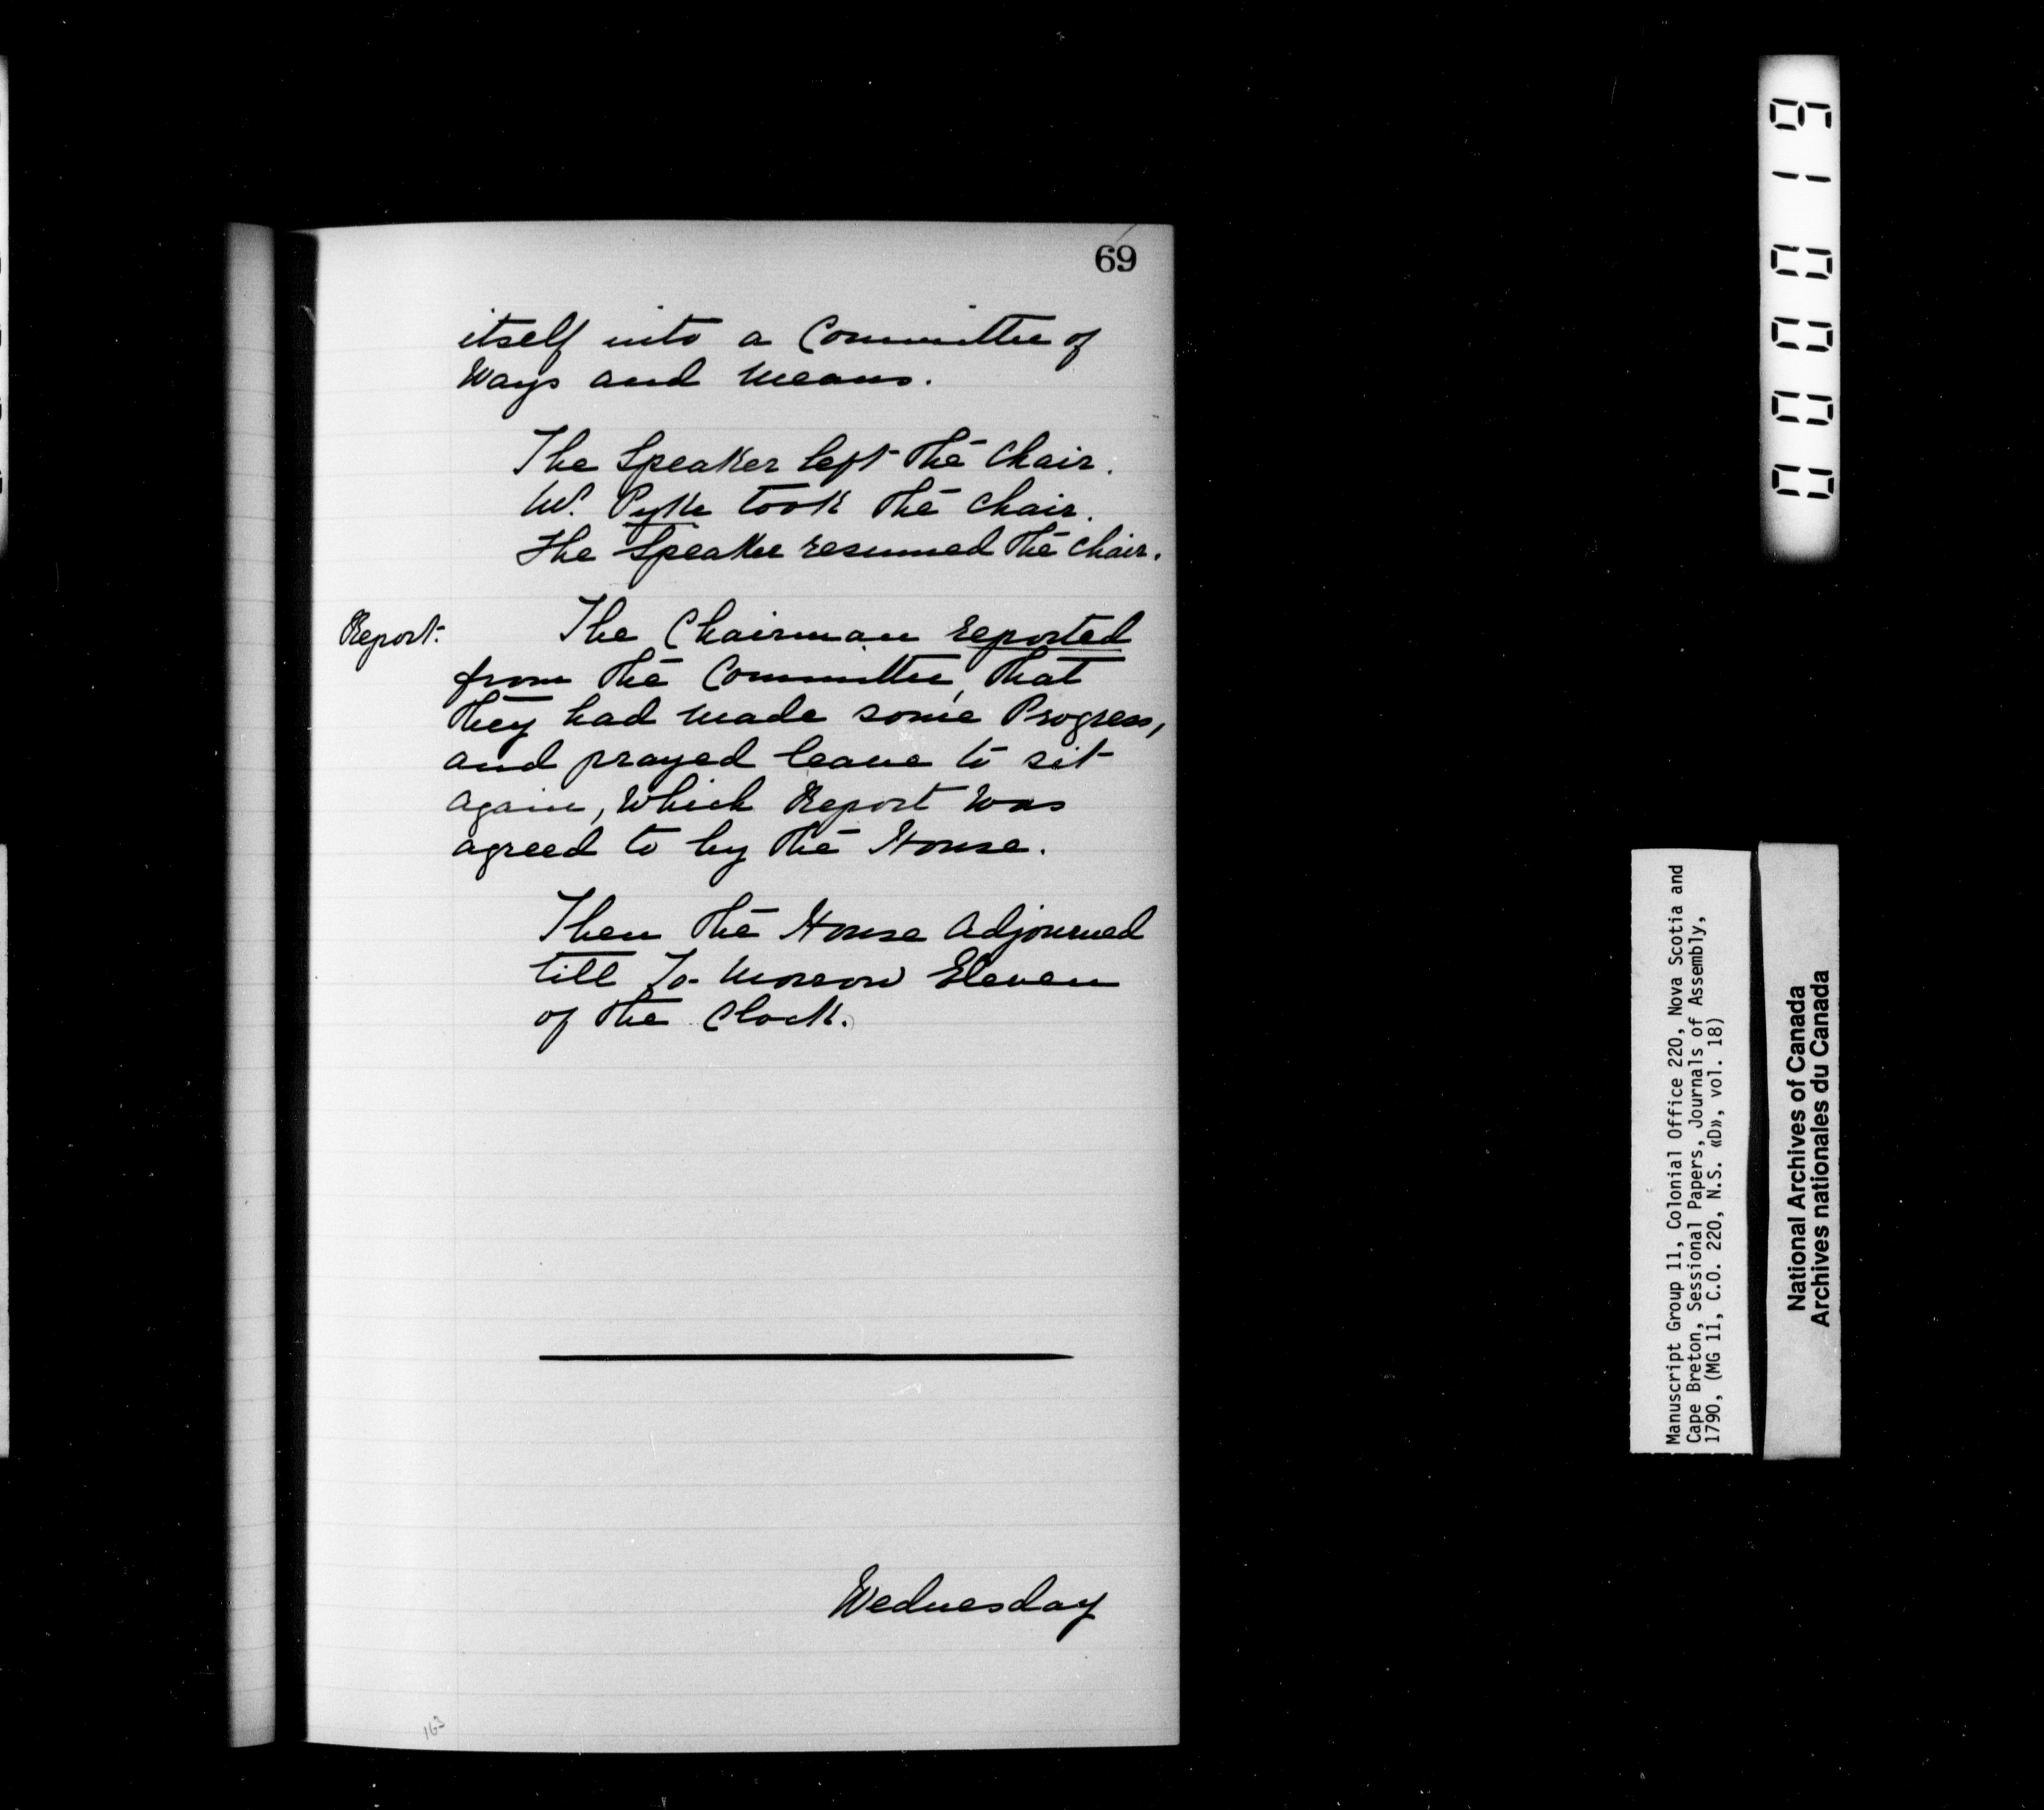 69
itself into a Committee of
Ways and Means.
The Speaker left the Chair.
Mr. Pyke took the chair.
The Speaker resumed the chair.
Report.
The Chairman reported
from the Committee, that
they had made some Progress,
and prayed leave to sit
again, which Report was
agreed to by the House.
Then the House adjourned
till To-Morrow Eleven
of the Clock.
Wednesday
163
000019
Manuscript Group 11, Colonial Office 220, Nova Scotia and
Cape Breton, Sessional Papers, Journals of Assembly,
1790, (MG 11, C.O. 220, N.S. «D», vol. 18)
National Archives of Canada
Archives nationales du Canada